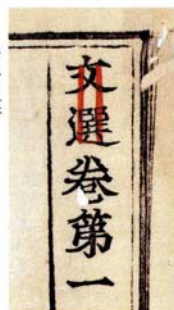 文選卷第一